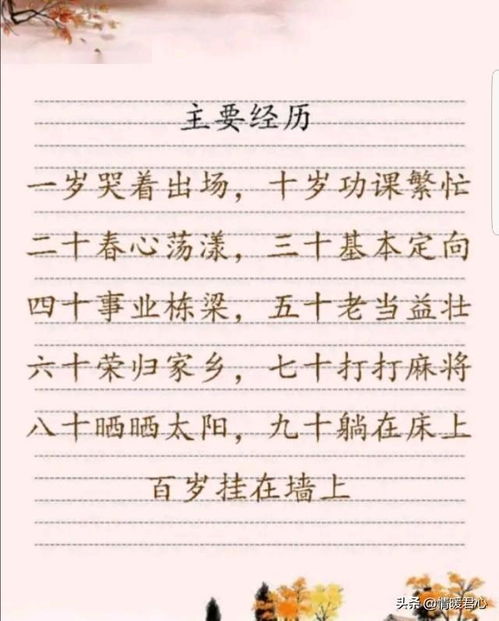 主要经历
一岁哭着出场，十岁功课繁忙
二十春心荡漾，三十基本定向
四十事业栋梁，五十老当益壮
六十荣归家乡，七十打打麻将
八十晒晒太阳，九十躺在床上
百岁挂在墙上
头条 @情暖君心